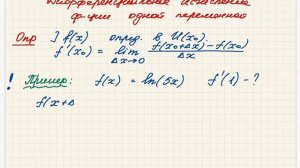 Дифференциальное исчисление
ф-ции одной переменной
Опр ] f(x) опред. в U(x₀).
f'(x₀) = lim Δx→0 f(x₀+Δx)−f(x₀) / Δx
! Пример: f(x) = ln(5x) f'(1) − ?
f(x+Δ